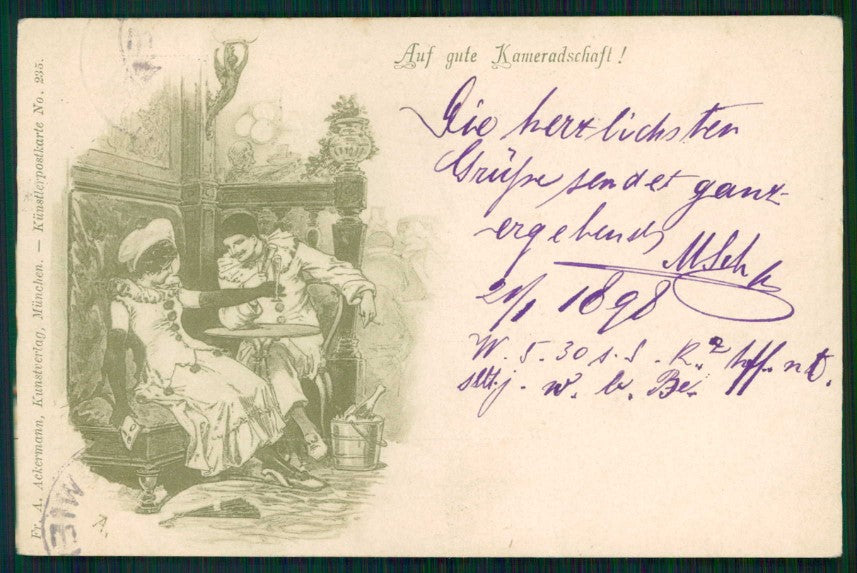 Auf gute Kameradschaft!
Die herzlichsten
Grüße sendet ganz
ergebenst
MSch
21/1 1898
W. 5. 30 s. S. R. hff. nt.
j. w. b. Be.
Fr. A. Ackermann, Kunstverlag, München. — Künstlerpostkarte No. 235.
WIE
A.